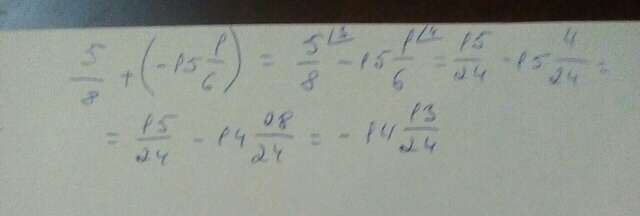 5/8 + (-15 1/6) = 5/8 ⌊3 - 15 1/6 ⌊4 = 15/24 - 15 4/24 =
= 15/24 - 14 28/24 = - 14 13/24